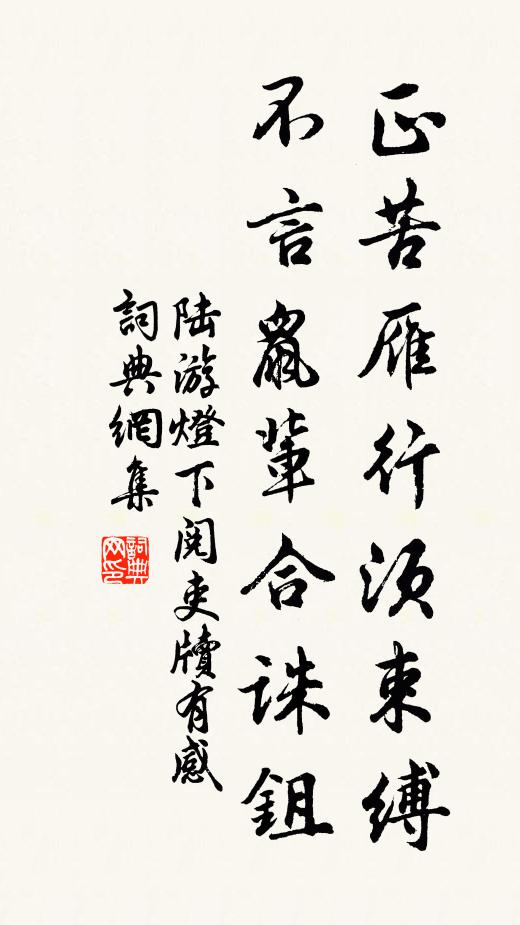 正苦雁行須束縛
不言鼠輩合誅鉏
陸游燈下閱吏牘有感
詞典網集
詞典網印